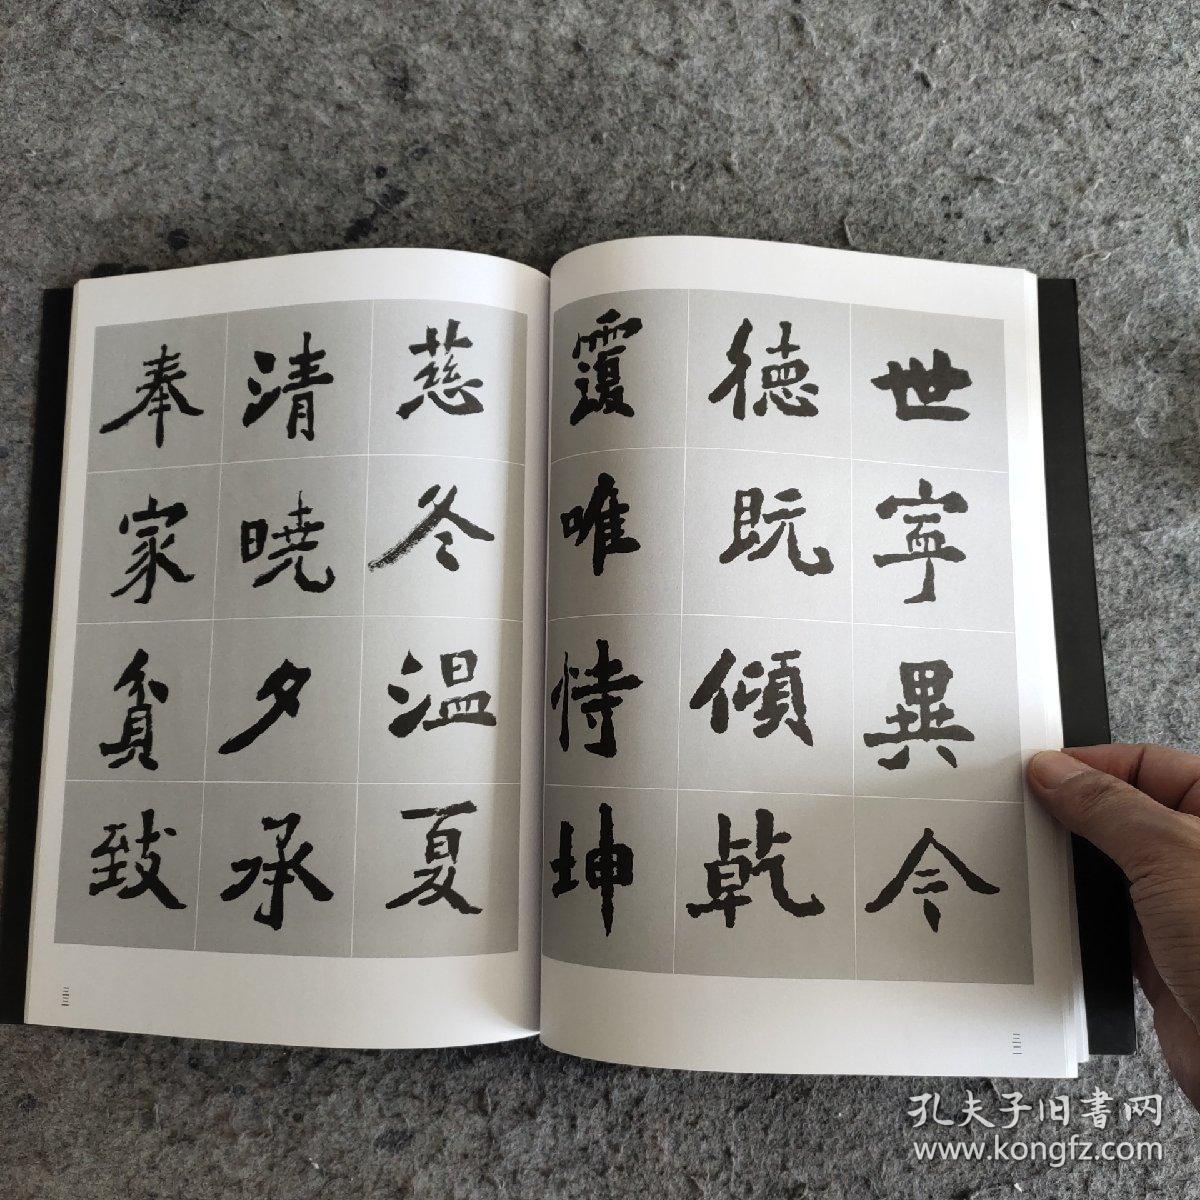 世寧異今
徳既傾乾
覆唯恃坤
三二
慈冬温夏
清暁夕承
奉家貧致
三三
孔夫子旧書网
www.kongfz.com